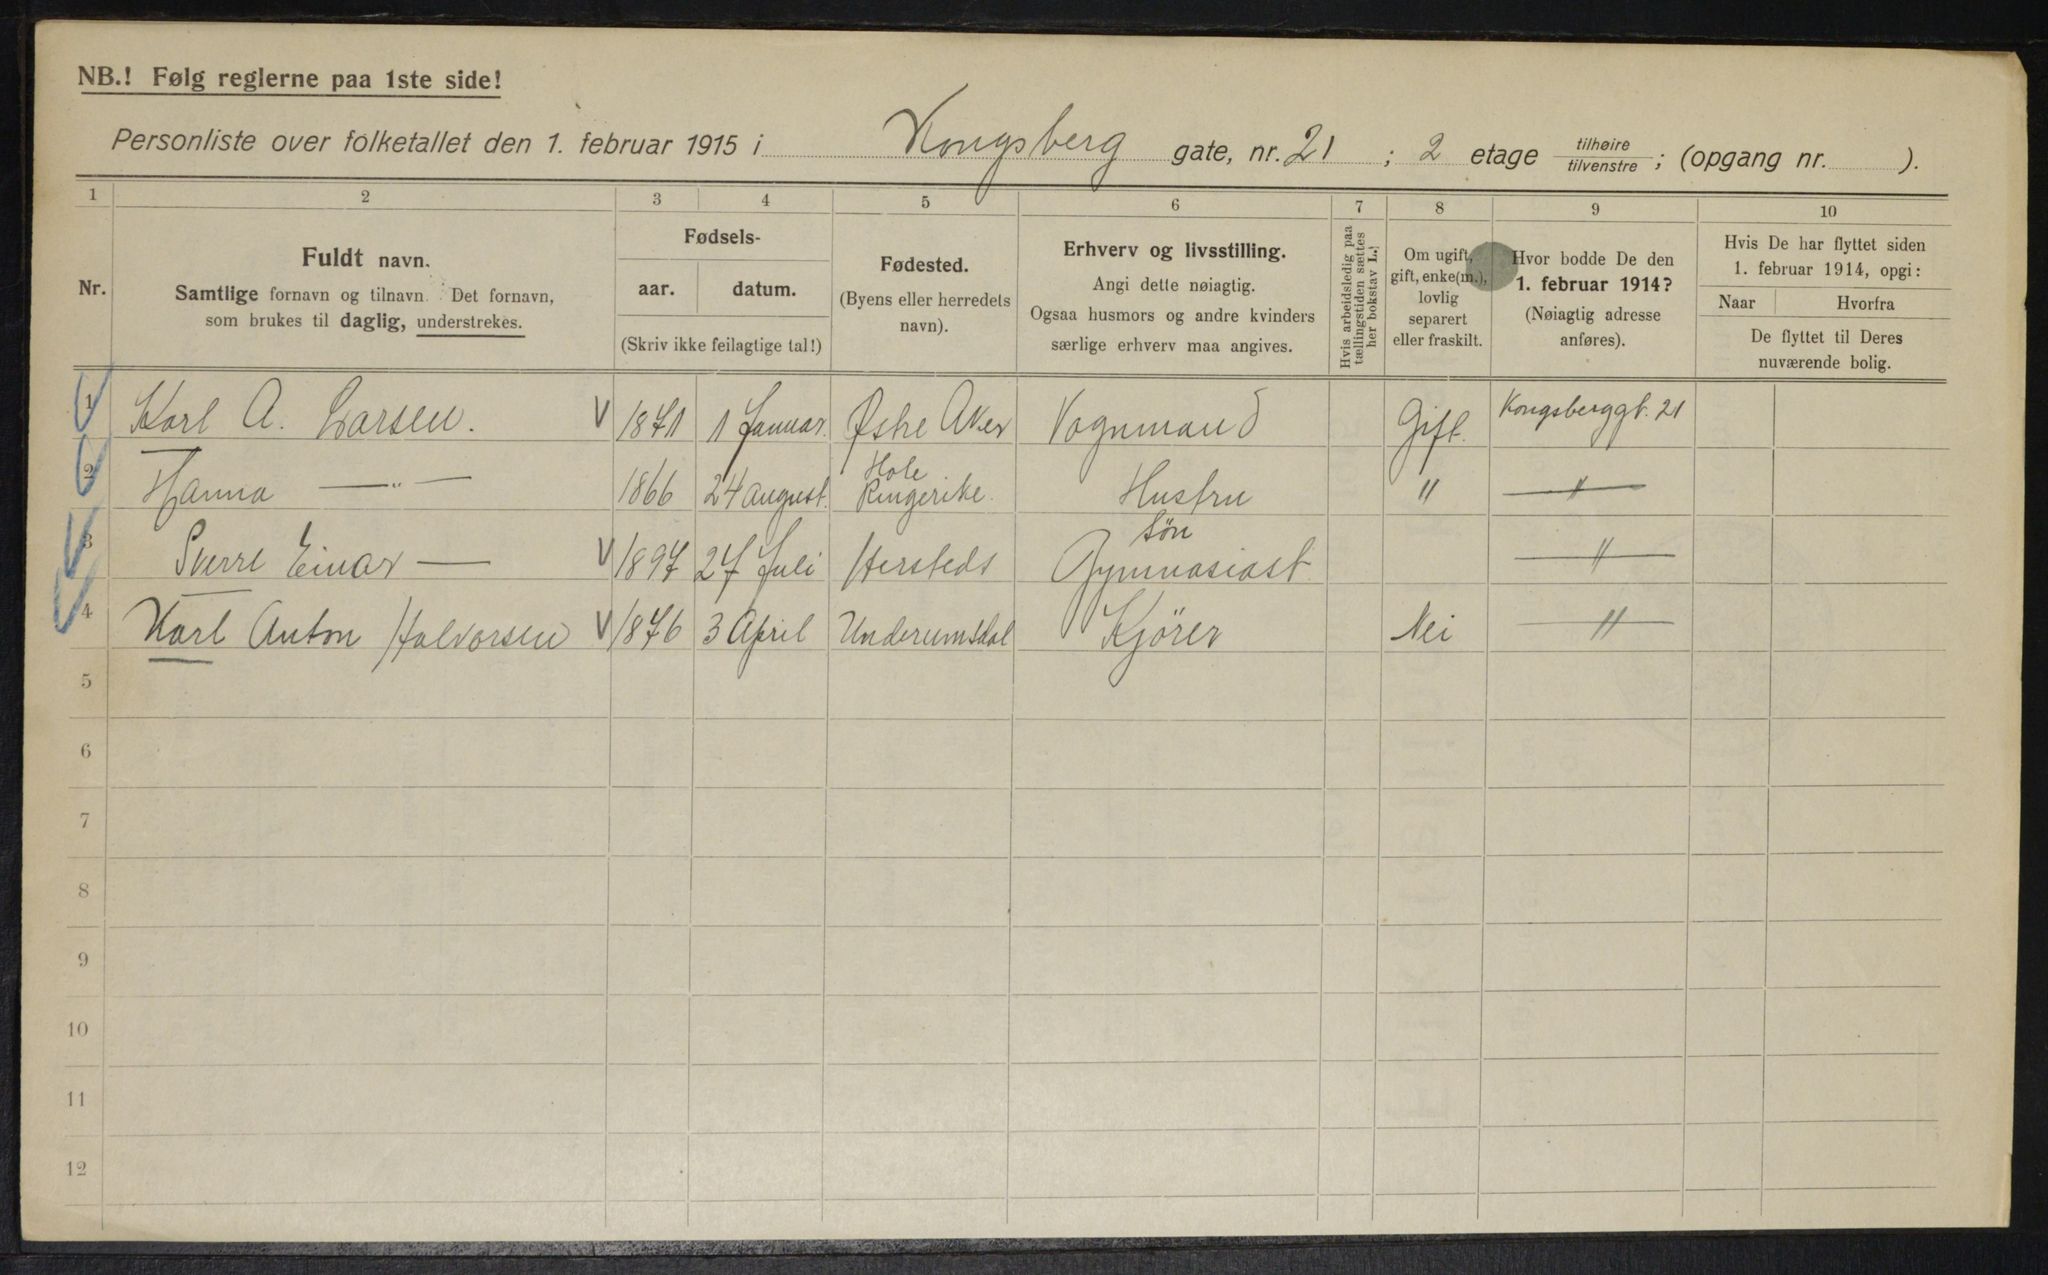 NB.! Følg reglerne paa 1ste side!
Personliste over folketallet den 1. februar 1915 i Kongsberg gate, nr. 21 ; 2 etage tilhøire / tilvenstre ; (opgang nr. ).
1 2 3 4 5 6 7 8 9 10
Nr.
Fuldt navn.
Samtlige fornavn og tilnavn. Det fornavn,
som brukes til daglig, understrekes.
Fødsels-
aar. datum.
(Skriv ikke feilagtige tal!)
Fødested.
(Byens eller herredets
navn).
Erhverv og livsstilling.
Angi dette nøiagtig.
Ogsaa husmors og andre kvinders
særlige erhverv maa angives.
Hvis arbeidsledig paa
tællingstiden sættes
her bokstav L.!
Om ugift,
gift, enke(m.),
lovlig
separert
eller fraskilt.
Hvor bodde De den
1. februar 1914?
(Nøiagtig adresse
anføres).
Hvis De har flyttet siden
1. februar 1914, opgi:
Naar Hvorfra
De flyttet til Deres
nuværende bolig.
1 Karl A. Larsen. V 1871 1 Januar. Østre Aker Vognmand Gift. Kongsberggt. 21
2 Hanna —„— 1866 24 august. Hole Ringerike. Hustru " — " —
3 Sverre Einar — V 1897 27 Juli Søn Gymnasiast — " —
4 Karl Anton Halvorsen V 1876 3 April Kjörer Nei — " —
5
6
7
8
9
10
11
12